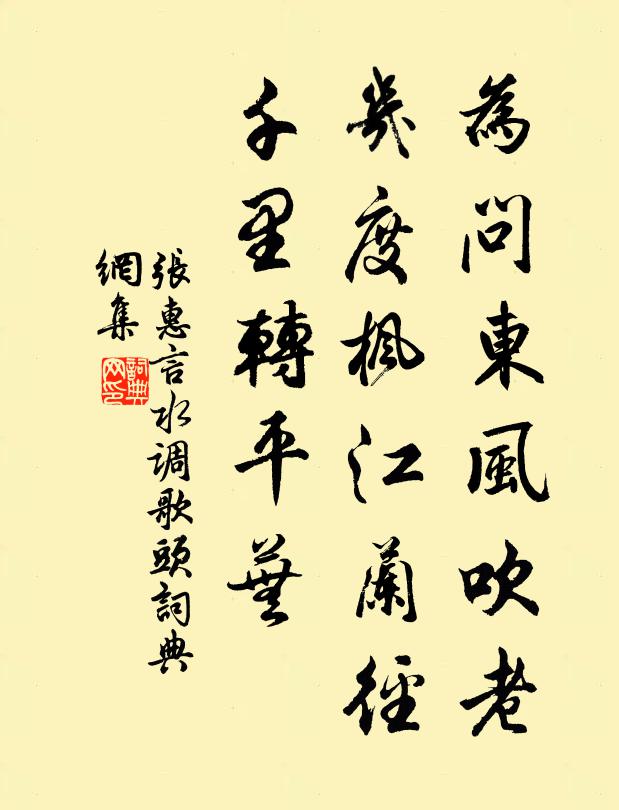 為問東風吹老
幾度楓江蘭徑
千里轉平蕪
張惠言水调歌頭詞典
網集
詞典
网印